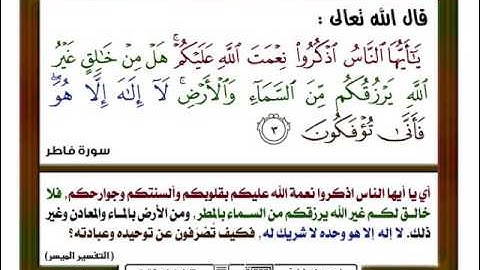 قال الله تعالى :
يَـٰٓأَيُّهَا ٱلنَّاسُ ٱذْكُرُوا۟ نِعْمَتَ ٱللَّهِ عَلَيْكُمْ ۚ هَلْ مِنْ خَـٰلِقٍ غَيْرُ
ٱللَّهِ يَرْزُقُكُم مِّنَ ٱلسَّمَآءِ وَٱلْأَرْضِ ۚ لَآ إِلَـٰهَ إِلَّا هُوَ ۖ
فَأَنَّىٰ تُؤْفَكُونَ ٣
سورة فاطر
أي يا أيها الناس اذكروا نعمة الله عليكم بقلوبكم وألسنتكم وجوارحكم, فلا
خالق لكم غير الله يرزقكم من السماء بالمطر, ومن الأرض بالماء والمعادن وغير
ذلك. لا إله إلا هو وحده لا شريك له, فكيف تُصْرَفون عن توحيده وعبادته؟
(التفسير الميسر)